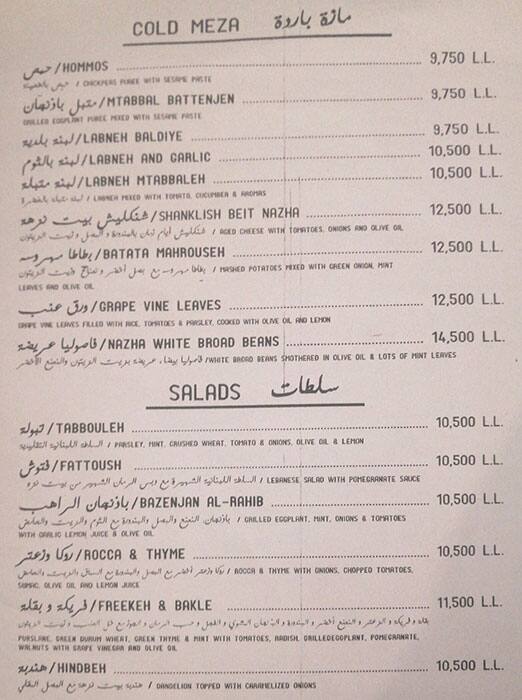 COLD MEZA مازة باردة
حمص/HOMMOS 9,750 L.L.
CHICKPEAS PUREE WITH SESAME PASTE
متبل باذنجان/MTABBAL BATTENJEN 9,750 L.L.
GRILLED EGGPLANT PUREE MIXED WITH SESAME PASTE
لبنة بلدية/LABNEH BALDIYE 9,750 L.L.
لبنة بالثوم/LABNEH AND GARLIC 10,500 L.L.
لبنة متبلة/LABNEH MTABBALEH 10,500 L.L.
/ LABNEH MIXED WITH TOMATO, CUCUMBER & AROMAS
شنكليش بيت نزهة/SHANKLISH BEIT NAZHA 12,500 L.L.
/ AGED CHEESE WITH TOMATOES, ONIONS AND OLIVE OIL
بطاطا مهروسة/BATATA MAHROUSEH 12,500 L.L.
/ MASHED POTATOES MIXED WITH GREEN ONION, MINT
LEAVES AND OLIVE OIL
ورق عنب/GRAPE VINE LEAVES 12,500 L.L.
GRAPE VINE LEAVES FILLED WITH RICE, TOMATOES & PARSLEY, COOKED WITH OLIVE OIL AND LEMON
فاصوليا عريضة/NAZHA WHITE BROAD BEANS 14,500 L.L.
فاصوليا بيضاء عريضة بزيت الزيتون والنعنع الأخضر/WHITE BROAD BEANS SMOTHERED IN OLIVE OIL & LOTS OF MINT LEAVES
SALADS سلطات
تبولة/TABBOULEH 10,500 L.L.
/ PARSLEY, MINT, CRUSHED WHEAT, TOMATO & ONIONS, OLIVE OIL & LEMON
فتوش/FATTOUSH 10,500 L.L.
/ LEBANESE SALAD WITH POMEGRANATE SAUCE
باذنجان الراهب/BAZENJAN AL-RAHIB 10,500 L.L.
/ GRILLED EGGPLANT, MINT, ONIONS & TOMATOES
WITH GARLIC LEMON JUICE & OLIVE OIL
روكا وزعتر/ROCCA & THYME 10,500 L.L.
/ ROCCA & THYME WITH ONIONS, CHOPPED TOMATOES,
SUMAC, OLIVE OIL AND LEMON JUICE
فريكة و بقلة/FREEKEH & BAKLE 11,500 L.L.
PURSLANE, GREEN DURUM WHEAT, GREEN THYME & MINT WITH TOMATOES, RADISH, GRILLEDEGGPLANT, POMEGRANATE,
WALNUTS WITH GRAPE VINEGAR AND OLIVE OIL
هندبة/HINDBEH 10,500 L.L.
/ DANDELION TOPPED WITH CARAMELIZED ONIONS